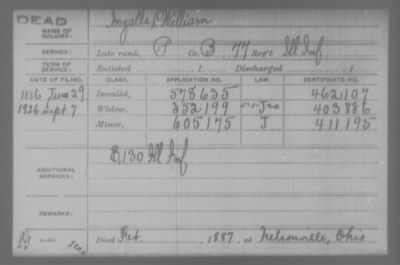 DEAD
NAME OF SOLDIER: Ingalls, William
SERVICE: Late rank, P Co. B, 77 Reg't Ill Inf
TERM OF SERVICE: Enlisted , 1 Discharged , 1
DATE OF FILING. CLASS. APPLICATION NO. LAW. CERTIFICATE NO.
1886 June 29 Invalid, 578635 462107
1926 Sept. 7 Widow, 352199 403886
Minor, 605175 J 411195
ADDITIONAL SERVICES: B, 130 Ill Inf
REMARKS:
Died Feb. , 1887, at Nelsonville, Ohio